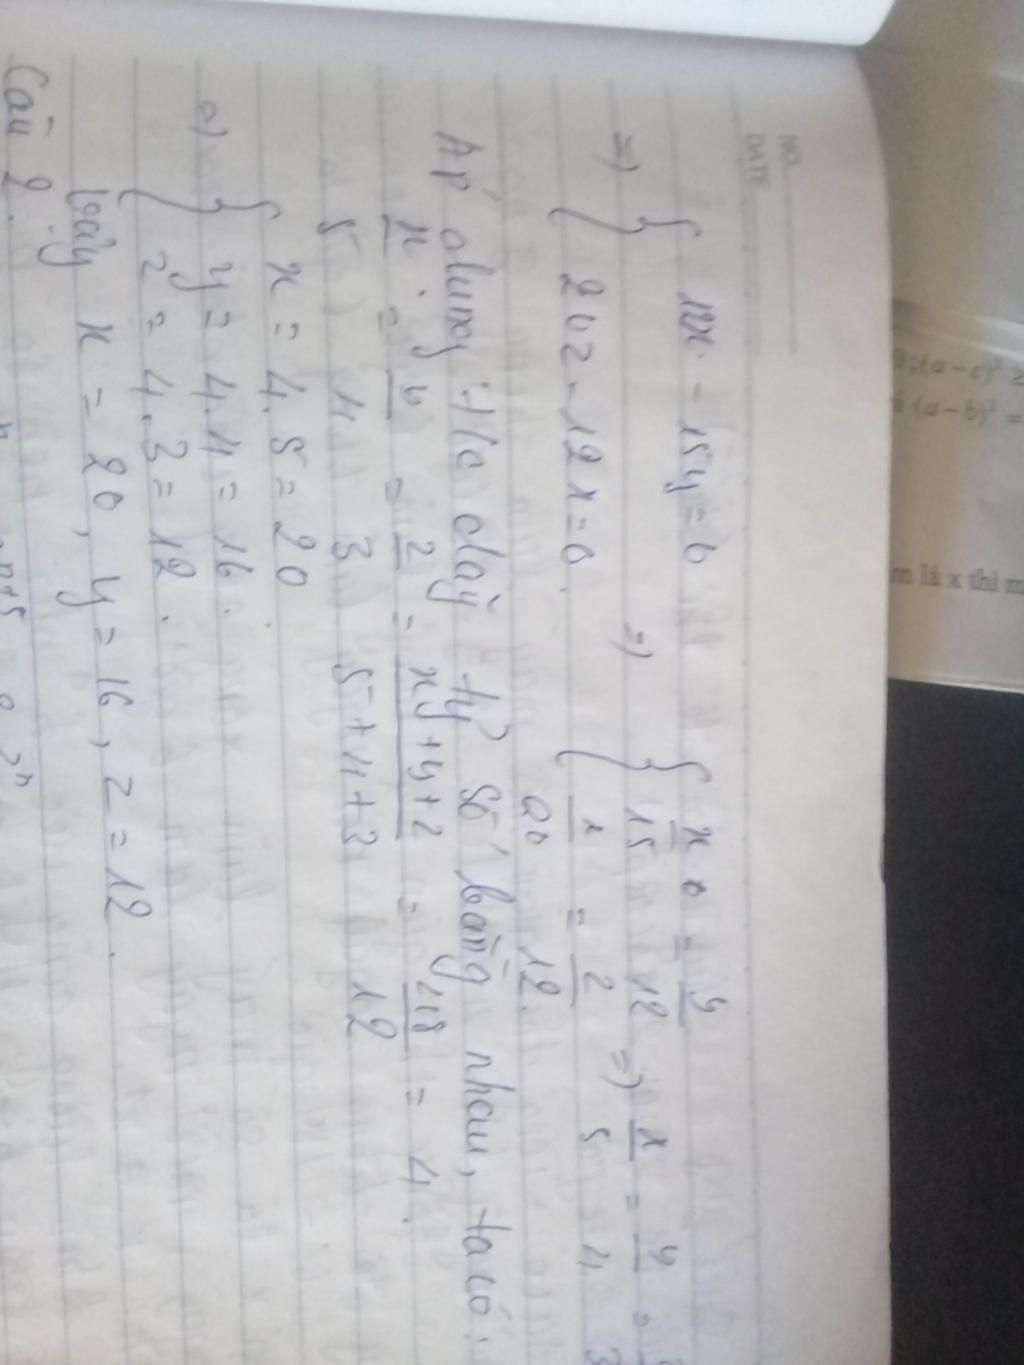 NO.
DATE
{ 12x - 15y = 0
=> =>
{ 20z - 12x = 0.
{ x = y
15 12 => x = y =
{ x = z 5 4. 3
20 12.
Áp dụng t/c dãy tỷ số bằng nhau, ta có:
x = y = z = xy+y+z = 48 = 4.
5 4 3 5+4+3 12
{ x = 4.5 = 20
=) { y = 4.4 = 16.
{ z = 4.3 = 12.
Vậy x = 20, y = 16, z = 12.
Câu 2.
; (a-c)² ≥
(a-b)² =
m là x thì m